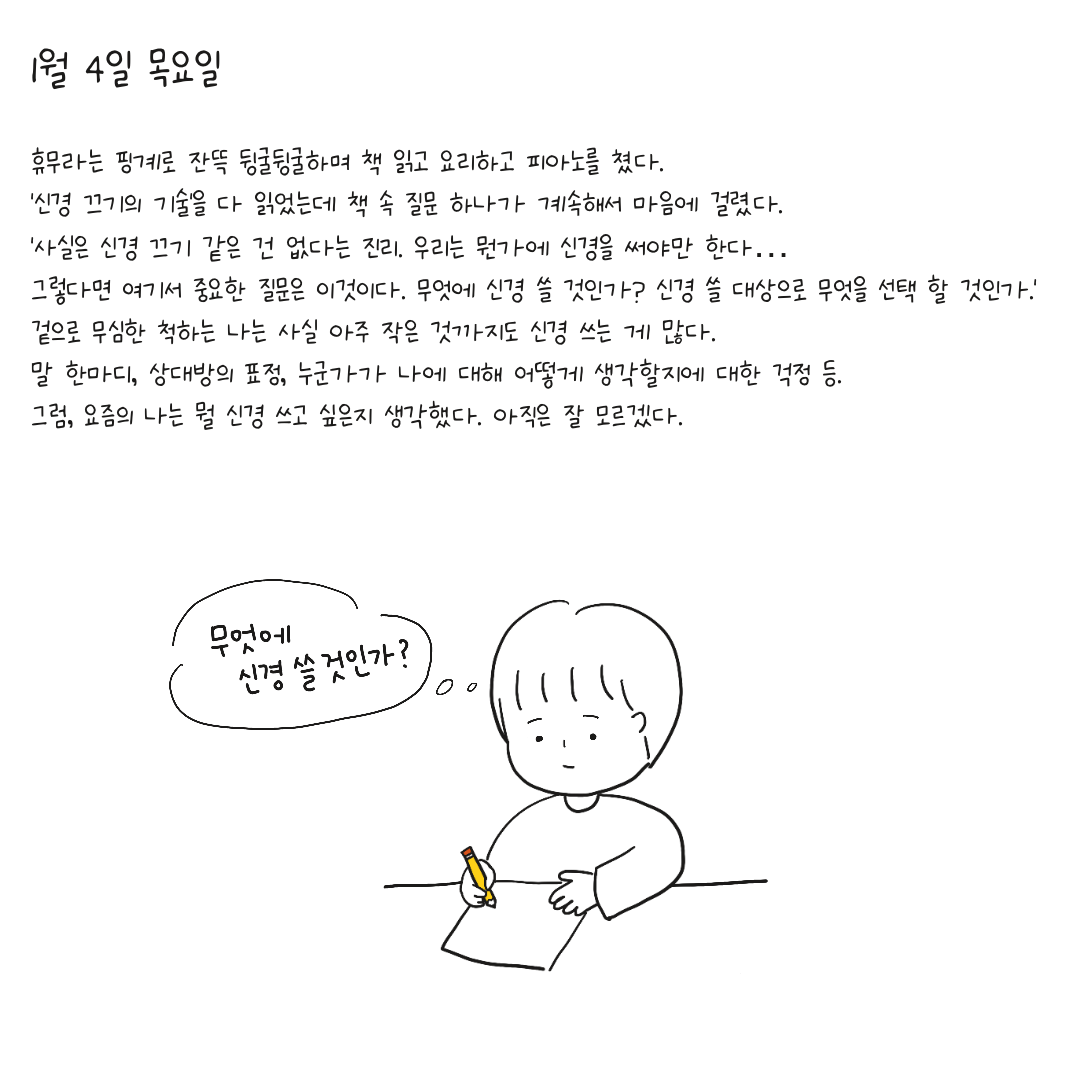 1월 4일 목요일
휴무라는 핑계로 잔뜩 뒹굴뒹굴하며 책 읽고 요리하고 피아노를 쳤다.
'신경 끄기의 기술'을 다 읽었는데 책 속 질문 하나가 계속해서 마음에 걸렸다.
'사실은 신경 끄기 같은 건 없다는 진리. 우리는 뭔가에 신경을 써야만 한다...
그렇다면 여기서 중요한 질문은 이것이다. 무엇에 신경 쓸 것인가? 신경 쓸 대상으로 무엇을 선택 할 것인가.'
겉으로 무심한 척하는 나는 사실 아주 작은 것까지도 신경 쓰는 게 많다.
말 한마디, 상대방의 표정, 누군가가 나에 대해 어떻게 생각할지에 대한 걱정 등.
그럼, 요즘의 나는 뭘 신경 쓰고 싶은지 생각했다. 아직은 잘 모르겠다.
무엇에
신경 쓸 것인가?